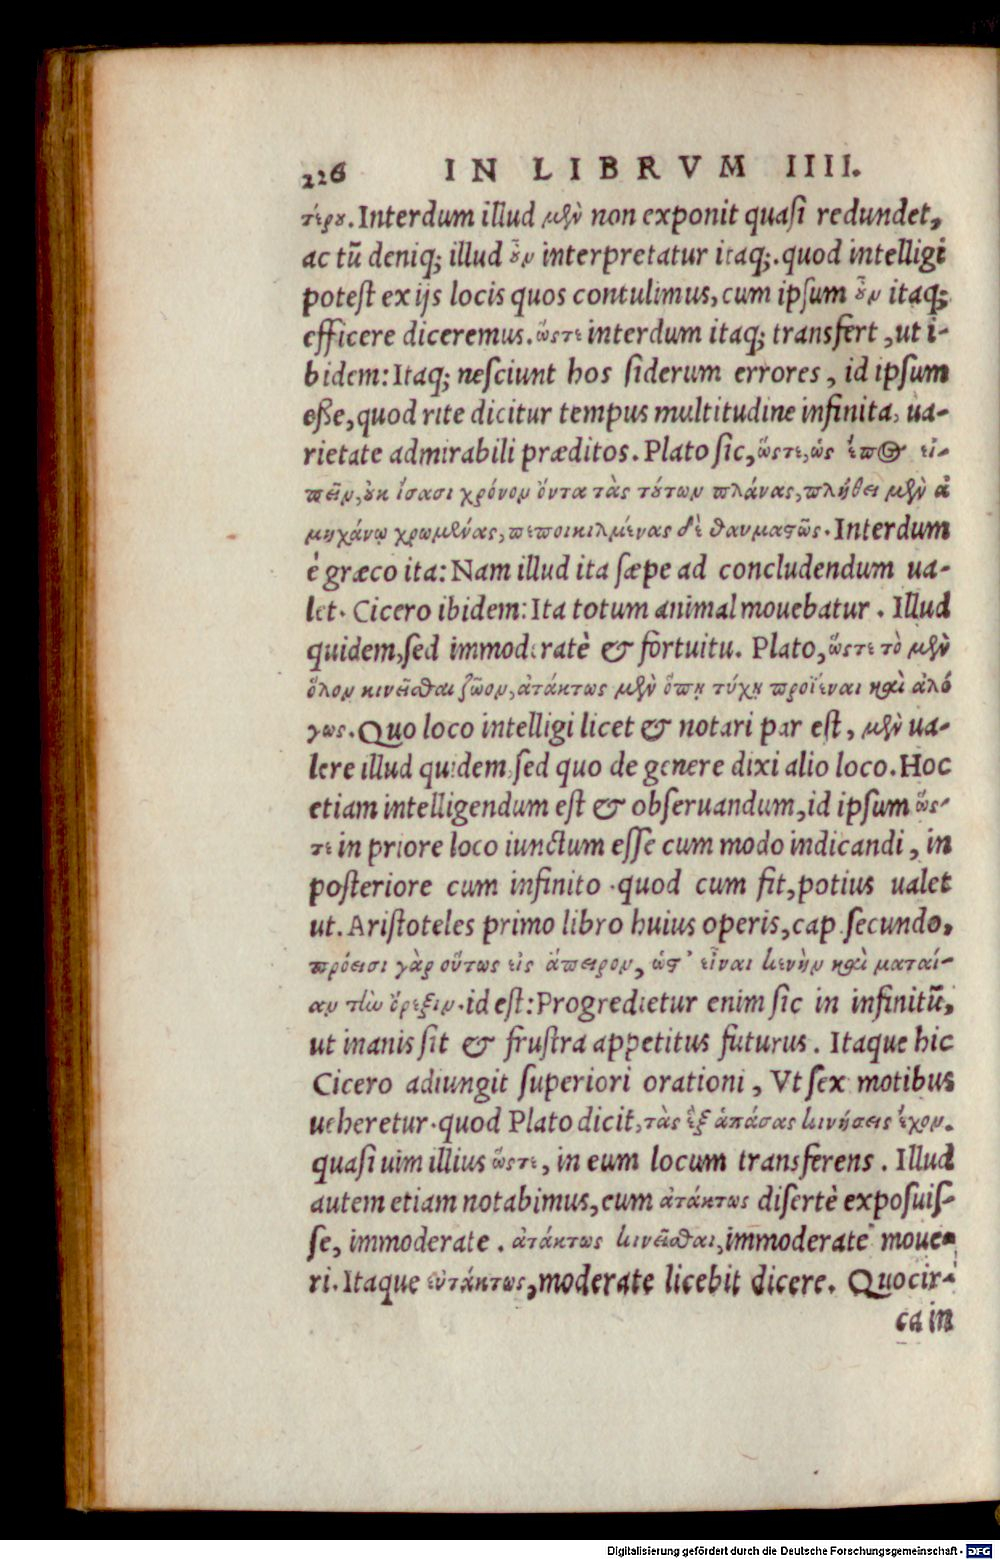 226 IN LIBRVM IIII.
τέρου. Interdum illud μὲν non exponit quasi redundet,
ac tū deniq; illud οὖν interpretatur itaq;. quod intelligi
potest ex ijs locis quos contulimus, cum ipsum οὖν itaq;
efficere diceremus. ὥστε interdum itaq; transfert, ut i-
bidem: Itaq; nesciunt hos siderum errores, id ipsum
esse, quod rite dicitur tempus multitudine infinita, ua-
rietate admirabili præditos. Plato sic, ὥστε, ὡς ἔπος εἰ-
πεῖν, οὐκ ἴσασι χρόνον ὄντα τὰς τούτων πλάνας, πλήθει μὲν ἀ
μηχάνῳ χρωμένας, πεποικιλμένας δὲ θαυμαστῶς. Interdum
è græco ita: Nam illud ita sæpe ad concludendum ua-
let. Cicero ibidem: Ita totum animal mouebatur. Illud
quidem, sed immoderatè & fortuitu. Plato, ὥστε τὸ μὲν
ὅλον κινεῖσθαι ζῶον, ἀτάκτως μὲν ὅπῃ τύχῃ προϊέναι καὶ ἀλό
γως. Quo loco intelligi licet & notari par est, μὲν ua-
lere illud quidem, sed quo de genere dixi alio loco. Hoc
etiam intelligendum est & obseruandum, id ipsum ὥς-
τε in priore loco iunctum esse cum modo indicandi, in
posteriore cum infinito. quod cum fit, potius ualet
ut. Aristoteles primo libro huius operis, cap. secundo,
πρόεισι γὰρ οὕτως εἰς ἄπειρον, ὡστ' εἶναι κενὴν καὶ ματαί-
αν τὴν ὄρεξιν. id est: Progredietur enim sic in infinitū,
ut inanis sit & frustra appetitus futurus. Itaque hic
Cicero adiungit superiori orationi, Vt sex motibus
ueheretur. quod Plato dicit, τὰς ἓξ ἁπάσας κινήσεις ἔχον.
quasi uim illius ὥστε, in eum locum transferens. Illud
autem etiam notabimus, cum ἀτάκτως disertè exposuis-
se, immoderate. ἀτάκτως κινεῖσθαι, immoderate moue-
ri. Itaque εὐτάκτως, moderate licebit dicere. Quocir-
ca in
Digitalisierung gefördert durch die Deutsche Forschungsgemeinschaft - DFG